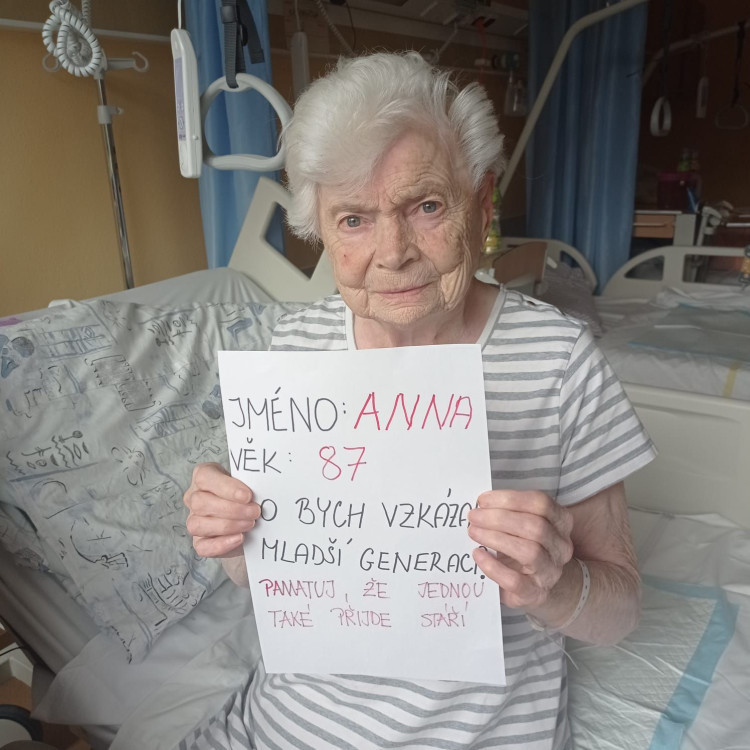 JMÉNO: ANNA
VĚK: 87
O BYCH VZKÁZA
MLADŠÍ GENERACI
PAMATUJ, ŽE JEDNOU
TAKÉ PŘIJDE STÁŘÍ